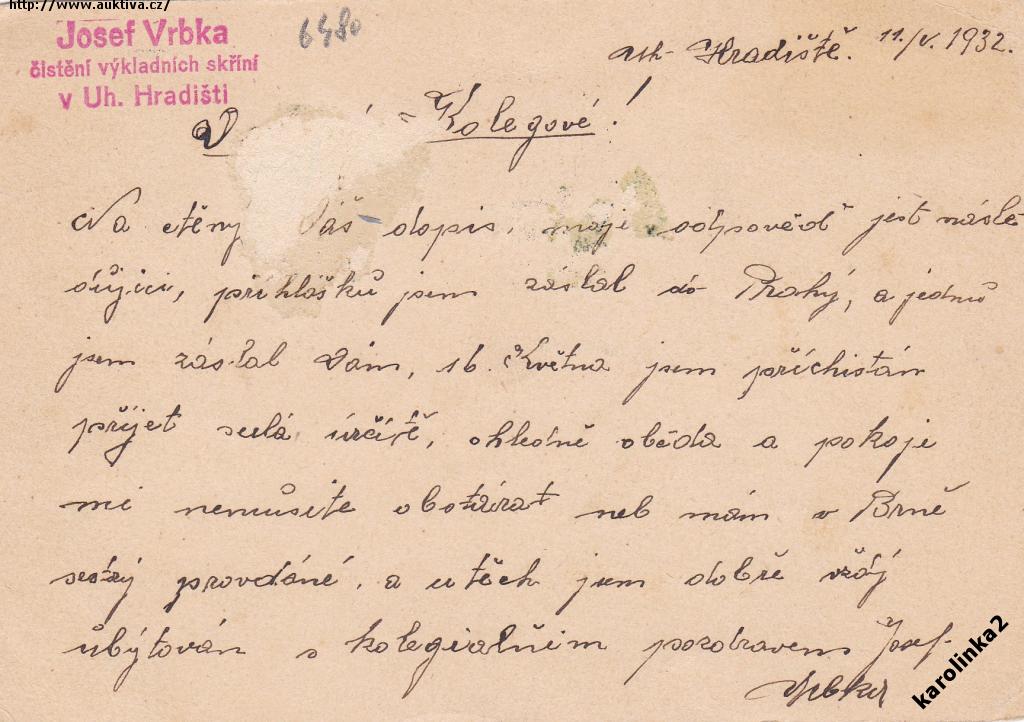 http://www.auktiva.cz/
Josef Vrbka
čistění výkladních skříní
v Uh. Hradišti
6480
Uh. Hradiště. 11./V. 1932.
Kolegové!
Na ctěný Váš dopis, moje odpověďˇ jest násle
důjici, přihlášků jsem zaslal do Prahý, a jednů
jsem zástal Vám, 16. Května jsem přichistán
přijet sulá určitě, ohledně oběda a pokoje
mi nemůsite obstárat neb mám v Brně
sestrý provdáné, a u těch jsem dobře vždý
ůbýtován s kolegialnim pozdravem Josef
Vrbka
karolinka2